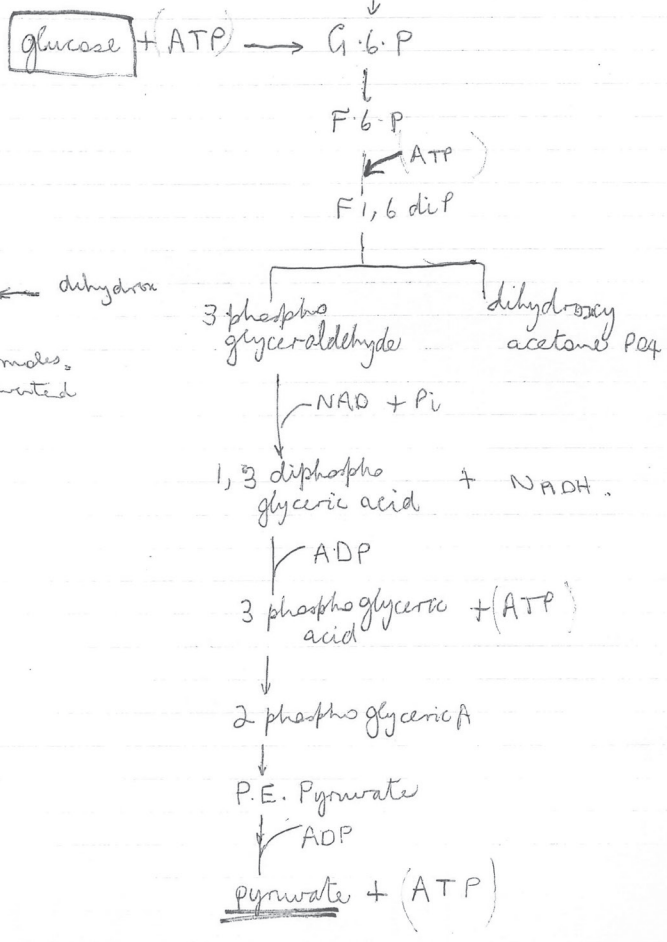 glucose + (ATP) → G.6.P
F.6.P
(ATP)
F 1,6 diP
dihydrox
3 phospho
glyceraldehyde
dihydroxy
acetone PO4
moles.
NAD + Pi
1, 3 diphospho
glyceric acid
+ NADH.
ADP
3 phosphoglyceric
acid
+ (ATP)
2 phosphoglyceric A
P.E. Pyruvate
ADP
pyruvate + (ATP)